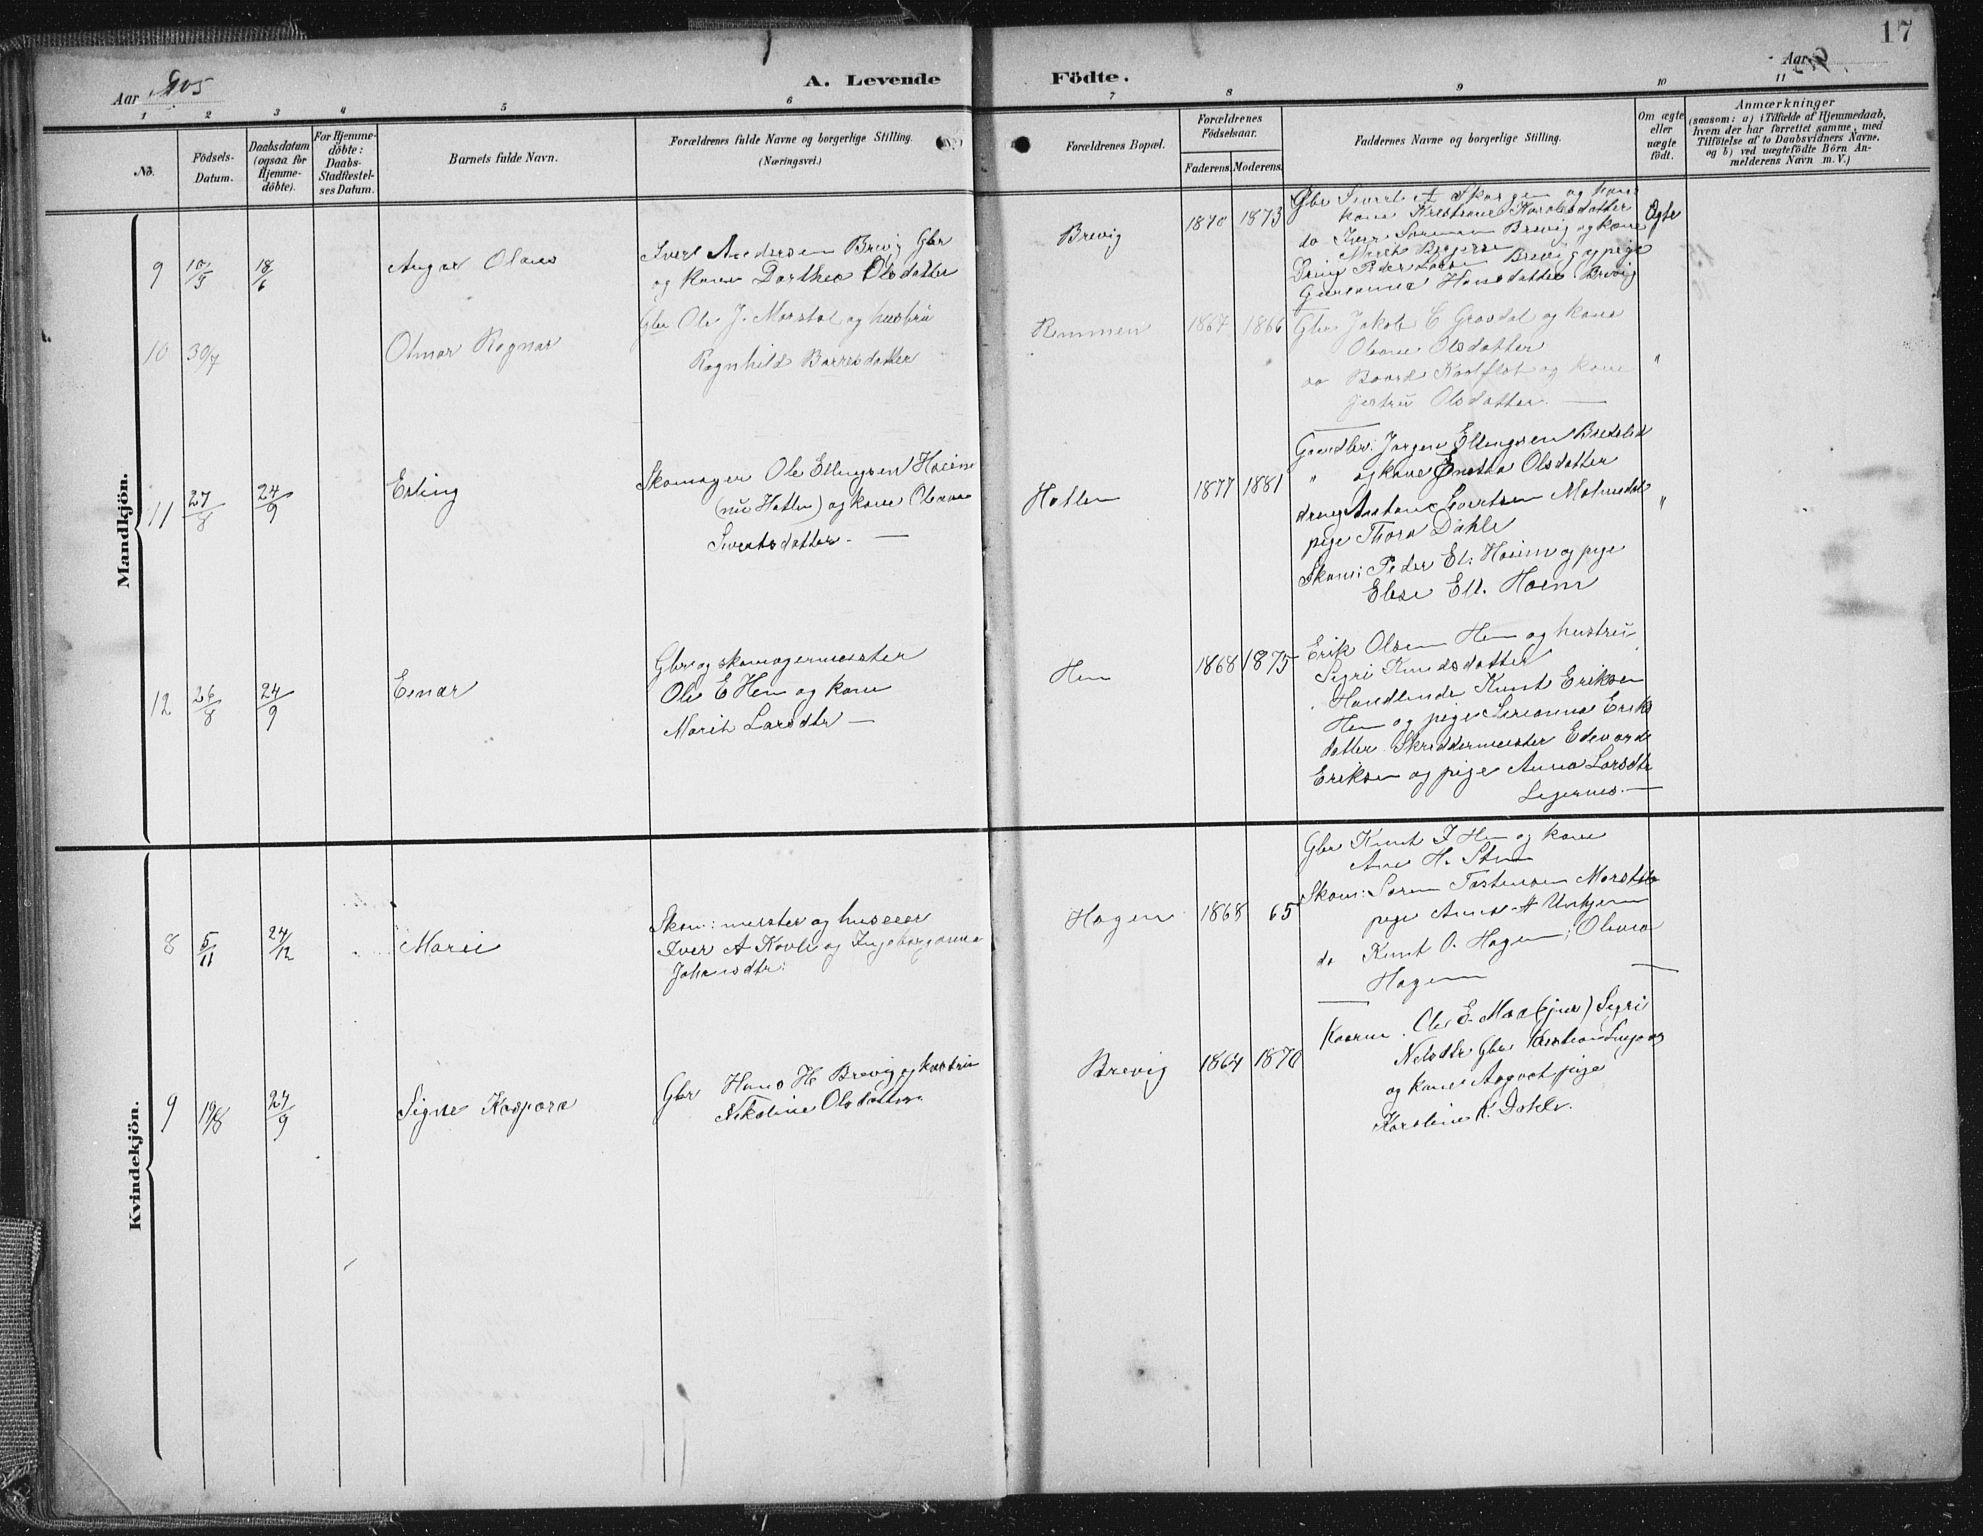 17
Aar 905
A. Levende Födte.
Aar
1 2 3 4 5 6 7 8 9 10 11
No.
Födsels-Datum.
Daabsdatum (ogsaa for Hjemme-döbte).
For Hjemme-döbte: Daabs-Stadfæstel-ses Datum.
Barnets fulde Navn.
Forældrenes fulde Navne og borgerlige Stilling.
(Næringsvei.)
Forældrenes Bopæl.
Forældrenes Födselsaar.
Faderens. Moderens.
Faddernes Navne og borgerlige Stilling.
Om ægte eller uægte födt.
Anmærkninger
(saasom: a) i Tilfælde af Hjemmedaab,
hvem der har forrettet samme, med
Tilföielse af to Daabsvidners Navne,
og b) ved uægtefödte Börn An-
melderens Navn m. V.)
Mandkjön.
9 10/5 18/6 Angar Olaus
Ivert Andersen Brevig Gbr
og kone Dorthea Olsdatter
Brevig 1870 1873
Gbr Sivert A Skorgen og hans
kone Kristiane Karolesdatter
do Iver Sorensen Brevig og kone
Marit
Dreng Peder Brevig og pige
Gurianna Hansdatter Brevig
Ægte
10 30/7 Otmar Ragnar
Gbr Ole J. Morstøl og hustru
Ragnhild Baresdatter
Remmen 1867 1866
Gbr Jakob C Grovdal og kone
Oleane Olsdatter
do Baard Kavlflot og kone
Jertru Olsdatter. —
"
11 27/8 24/9 Erling
Skomager Ole Ellingsen Hoiem
(nu Hatlen) og kone Oleane
Sivertsdatter. —
Hatlen 1877 1881
Gaardbr: Jørgen Ellingsen Bretelid
" og kone Olsdatter
dreng Anton Sivertsen Malmedal
pige Thora Dahle
Skom: Peder El: Hoiem og pige
Elise Ell. Hoem
"
12 26/8 24/9 Einar
Gbr og skomagermester
Ole E Hen og kone
Marit Larsdtr —
Hen 1868 1875
Erik Olsen Hen og hustru
Sigri Knudsdatter
Handlende Knut Eriksen
Hen og pige Serianna Eriks
datter. Skreddermester Edevard
Eriksen og pige Anna Larsdtr
Legernes. —
Kvindekjön.
8 5/11 24/12 Marie
Skom: mester og huseier
Iver A Kavli og Ingeborganna
Johansdtr:
Hagen 1868 65
Gbr Knut I Hen og kone
Ane H. Sten
Skom: Soren Tostensen Morstøl
pige Anna H Unhjem
do Knut O. Hagen; Olevia
Hagen —
9 19/8 24/9 Signe Kaspara
Gbr Hans H. Brevig og hustru
Nikoline Olsdatter
Brevig 1864 1870
Kaarm. Ole E. Maa (gjur) Sigri
Nelsdtr Gbr Kristian
og kone August pige
Karoline K. Dahle.